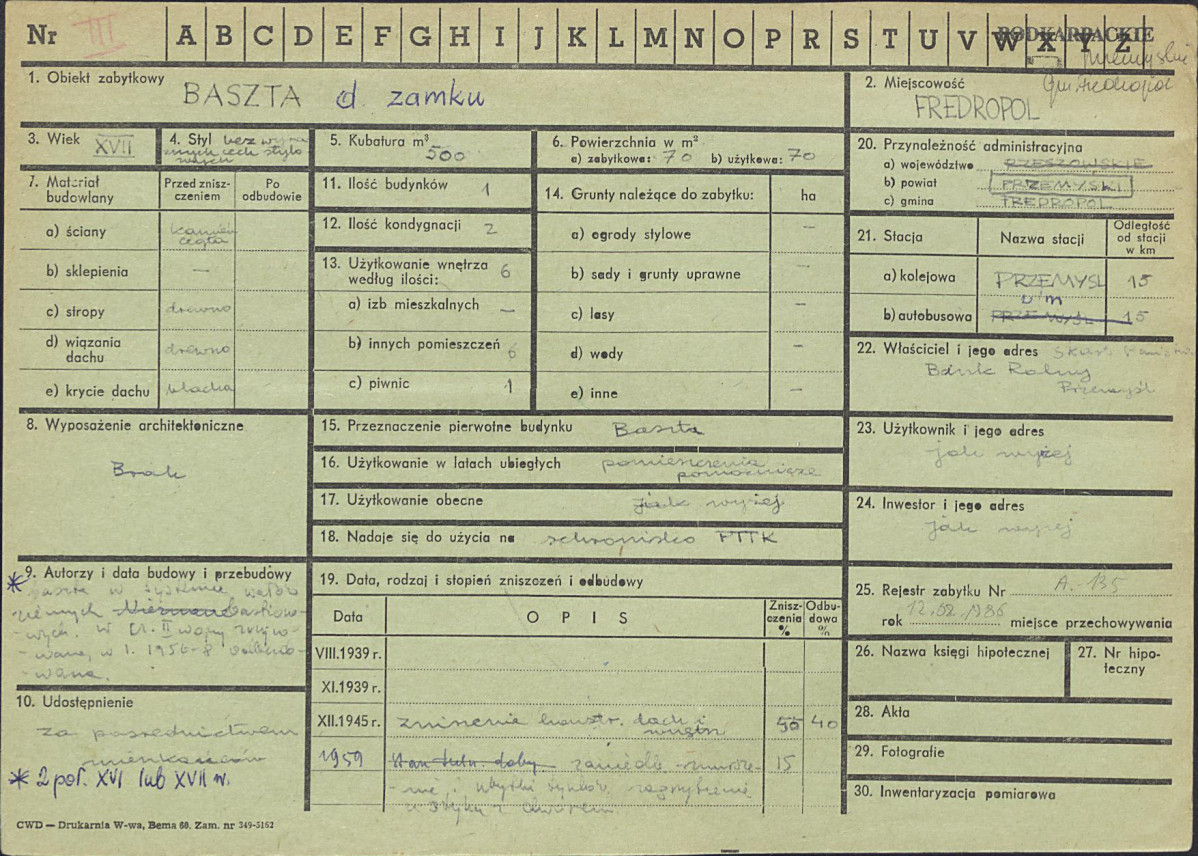 Nr III A B C D E F G H I J K L M N O P R S T U V W X Y Z
PODKARPACKIE
przemyski
gm Fredropol
1. Obiekt zabytkowy BASZTA d. zamku
2. Miejscowość
FREDROPOL
3. Wiek XVII
4. Styl bez wyra-
znych cech stylo-
wych
5. Kubatura m³
500
6. Powierzchnia w m²
a) zabytkowa: 70 b) użytkowa: 70
7. Materiał
budowlany
Przed znisz-
czeniem
Po
odbudowie
a) ściany kamień
cegła
b) sklepienia —
c) stropy drewno
d) wiązania
dachu drewno
e) krycie dachu blacha
11. Ilość budynków 1
12. Ilość kondygnacji 2
13. Użytkowanie wnętrza
według ilości: 6
a) izb mieszkalnych —
b) innych pomieszczeń 6
c) piwnic 1
14. Grunty należące do zabytku: ha
a) ogrody stylowe —
b) sady i grunty uprawne —
c) lasy —
d) wody —
e) inne —
20. Przynależność administracyjna
a) województwo RZESZOWSKIE
b) powiat PRZEMYSKI
c) gmina FREDROPOL
21. Stacja Nazwa stacji
Odległość
od stacji
w km
a) kolejowa PRZEMYŚL 15
b) autobusowa PRZEMYŚL 15
22. Właściciel i jego adres Skarb Państwa
Bank Rolny
Przemyśl
8. Wyposażenie architektoniczne
Brak
15. Przeznaczenie pierwotne budynku Baszta
16. Użytkowanie w latach ubiegłych pomieszczenia
pomocnicze
17. Użytkowanie obecne jak wyżej
18. Nadaje się do użycia na schronisko PTTK
23. Użytkownik i jego adres
jak wyżej
24. Inwestor i jego adres
jak wyżej
9. Autorzy i data budowy i przebudowy
* baszta w systemie wałów
ziemnych bastiono-
wych. W cz. II wojny zrujno-
wana, w l. 1956-8 odbudo-
wana.
10. Udostępnienie
za pośrednictwem
mieszkańców
* 2 poł. XVI lub XVII w.
19. Data, rodzaj i stopień zniszczeń i odbudowy
Data OPIS
Znisz-
czenia
%
Odbu-
dowa
%
VIII.1939 r.
XI.1939 r.
XII.1945 r. zniszczenie konstr. dach i
wnętrz 55 40
1959 15
i ubytki tynków
25. Rejestr zabytku Nr A-135
12.02.1986
rok miejsce przechowywania
26. Nazwa księgi hipotecznej
27. Nr hipo-
teczny
28. Akta
29. Fotografie
30. Inwentaryzacja pomiarowa
CWD — Drukarnia W-wa, Bema 60. Zam. nr 349-5162